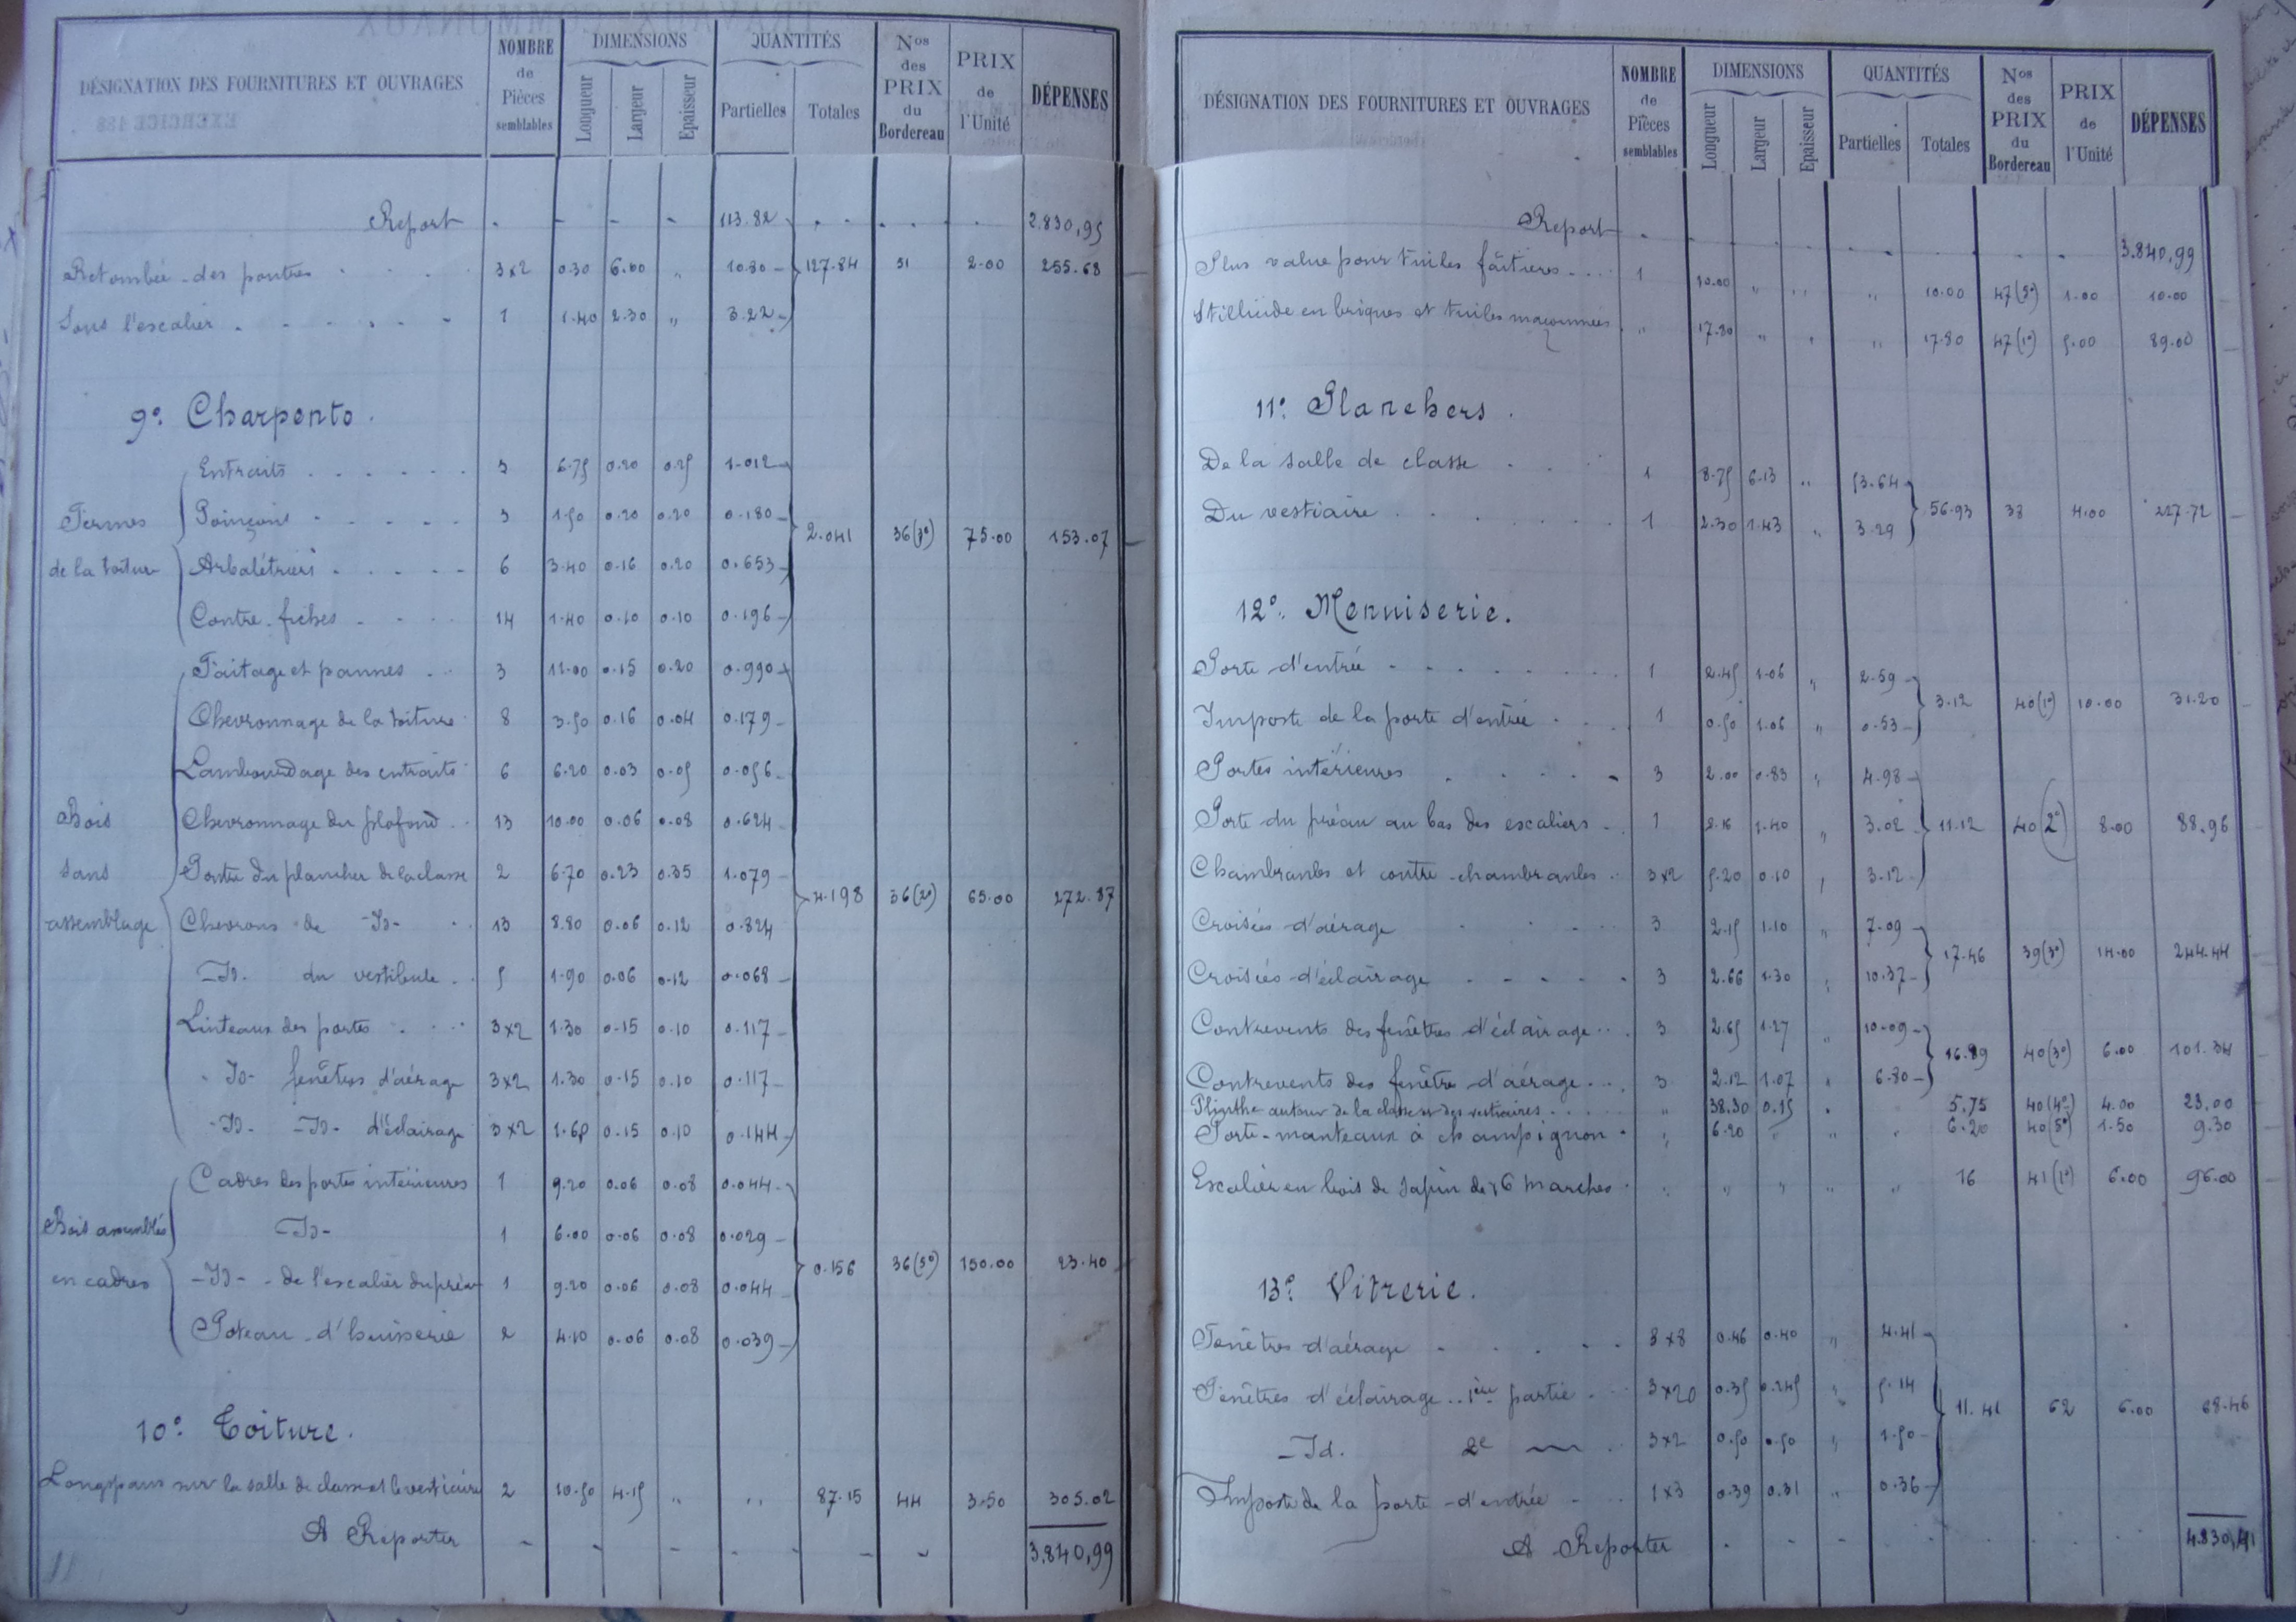 DÉSIGNATION DES FOURNITURES ET OUVRAGES NOMBRE de Pièces semblables DIMENSIONS Longueur Largeur Epaisseur QUANTITÉS Partielles Totales Nos des PRIX du Bordereau PRIX de l'Unité DÉPENSES
Report 113.82 2.830,95
Retombée des poutres 3x2 0.30 6.00 " 10.80 127.84 51 2.00 255.68
Sous l'escalier 1 1.40 2.30 " 3.22
9º. Charpente.
Fermes de la toiture
Entraits 3 6.75 0.20 0.25 1.012
Poinçons 3 1.50 0.20 0.20 0.180 2.041 36(3º) 75.00 153.07
Arbalétriers 6 3.40 0.16 0.20 0.653
Contre-fiches 14 1.40 0.10 0.10 0.196
Bois sans assemblage
Faitage et pannes 3 11.00 0.15 0.20 0.990
Chevronnage de la toiture 8 3.50 0.16 0.04 0.179
Lambourdage des entraits 6 6.20 0.03 0.05 0.056
Chevronnage du plafond 13 10.00 0.06 0.08 0.624
Poutre du plancher de la classe 2 6.70 0.23 0.35 1.079 4.198 36(2º) 65.00 272.87
Chevrons de -Id- 13 8.80 0.06 0.12 0.824
-Id. du vestibule 5 1.90 0.06 0.12 0.068
Linteaux des portes 3x2 1.30 0.15 0.10 0.117
-Id- fenêtres d'aérage 3x2 1.30 0.15 0.10 0.117
-Id- -Id- d'éclairage 3x2 1.60 0.15 0.10 0.144
Bois assemblés en cadres
Cadres des portes intérieures 1 9.20 0.06 0.08 0.044
-Id- 1 6.00 0.06 0.08 0.029
-Id- de l'escalier du préau 1 9.20 0.06 0.08 0.044 0.156 36(5º) 150.00 23.40
Poteau d'huisserie 2 4.10 0.06 0.08 0.039
10º. Toiture.
Longspans sur la salle de classe et le vestiaire 2 10.50 4.15 " " 87.15 44 3.50 305.02
A Reporter 3.840,99
DÉSIGNATION DES FOURNITURES ET OUVRAGES NOMBRE de Pièces semblables DIMENSIONS Longueur Largeur Epaisseur QUANTITÉS Partielles Totales Nos des PRIX du Bordereau PRIX de l'Unité DÉPENSES
Report 3.840,99
Plus value pour tuiles faîtieres 1 10.00 " " " 10.00 47(5º) 1.00 10.00
Stillicide en briques et tuiles maçonnées " 17.80 " " " 17.80 47(1º) 5.00 89.00
11º. Planchers.
De la salle de classe 1 8.75 6.13 " 53.64
Du vestiaire 1 2.30 1.43 " 3.29 56.93 38 4.00 227.72
12º. Menuiserie.
Porte d'entrée 1 2.45 1.06 " 2.59
Imposte de la porte d'entrée 1 0.50 1.06 " 0.53 3.12 40(1º) 10.00 31.20
Portes intérieures 3 2.00 0.83 " 4.98
Porte du préau au bas des escaliers 1 2.16 1.40 " 3.02 11.12 40(2º) 8.00 88.96
Chambranles et contre-chambranles 3x2 5.20 0.10 " 3.12
Croisées d'aérage 3 2.15 1.10 " 7.09
Croisées d'éclairage 3 2.66 1.30 " 10.37 17.46 39(3º) 14.00 244.44
Contrevents des fenêtres d'éclairage 3 2.65 1.27 " 10.09
Contrevents des fenêtre d'aérage 3 2.12 1.07 " 6.80 16.89 40(3º) 6.00 101.34
Plinthe autour de la classe et des vestiaires " 38.30 0.15 " 5.75 40(4º) 4.00 23.00
Porte-manteaux à champignon " 6.20 " " " 6.20 40(5º) 1.50 9.30
Escalier en bois de sapin de 16 marches " " " " " 16 41(1º) 6.00 96.00
13º. Vitrerie.
Fenêtres d'aérage 3x8 0.46 0.40 " 4.41
Fenêtres d'éclairage 1ère partie 3x20 0.35 0.245 " 5.14 11.41 62 6.00 68.46
-Id. 2e 3x2 0.50 0.50 " 1.50
Imposte de la porte d'entrée 1x3 0.39 0.31 " 0.36
A Reporter 4.830,41